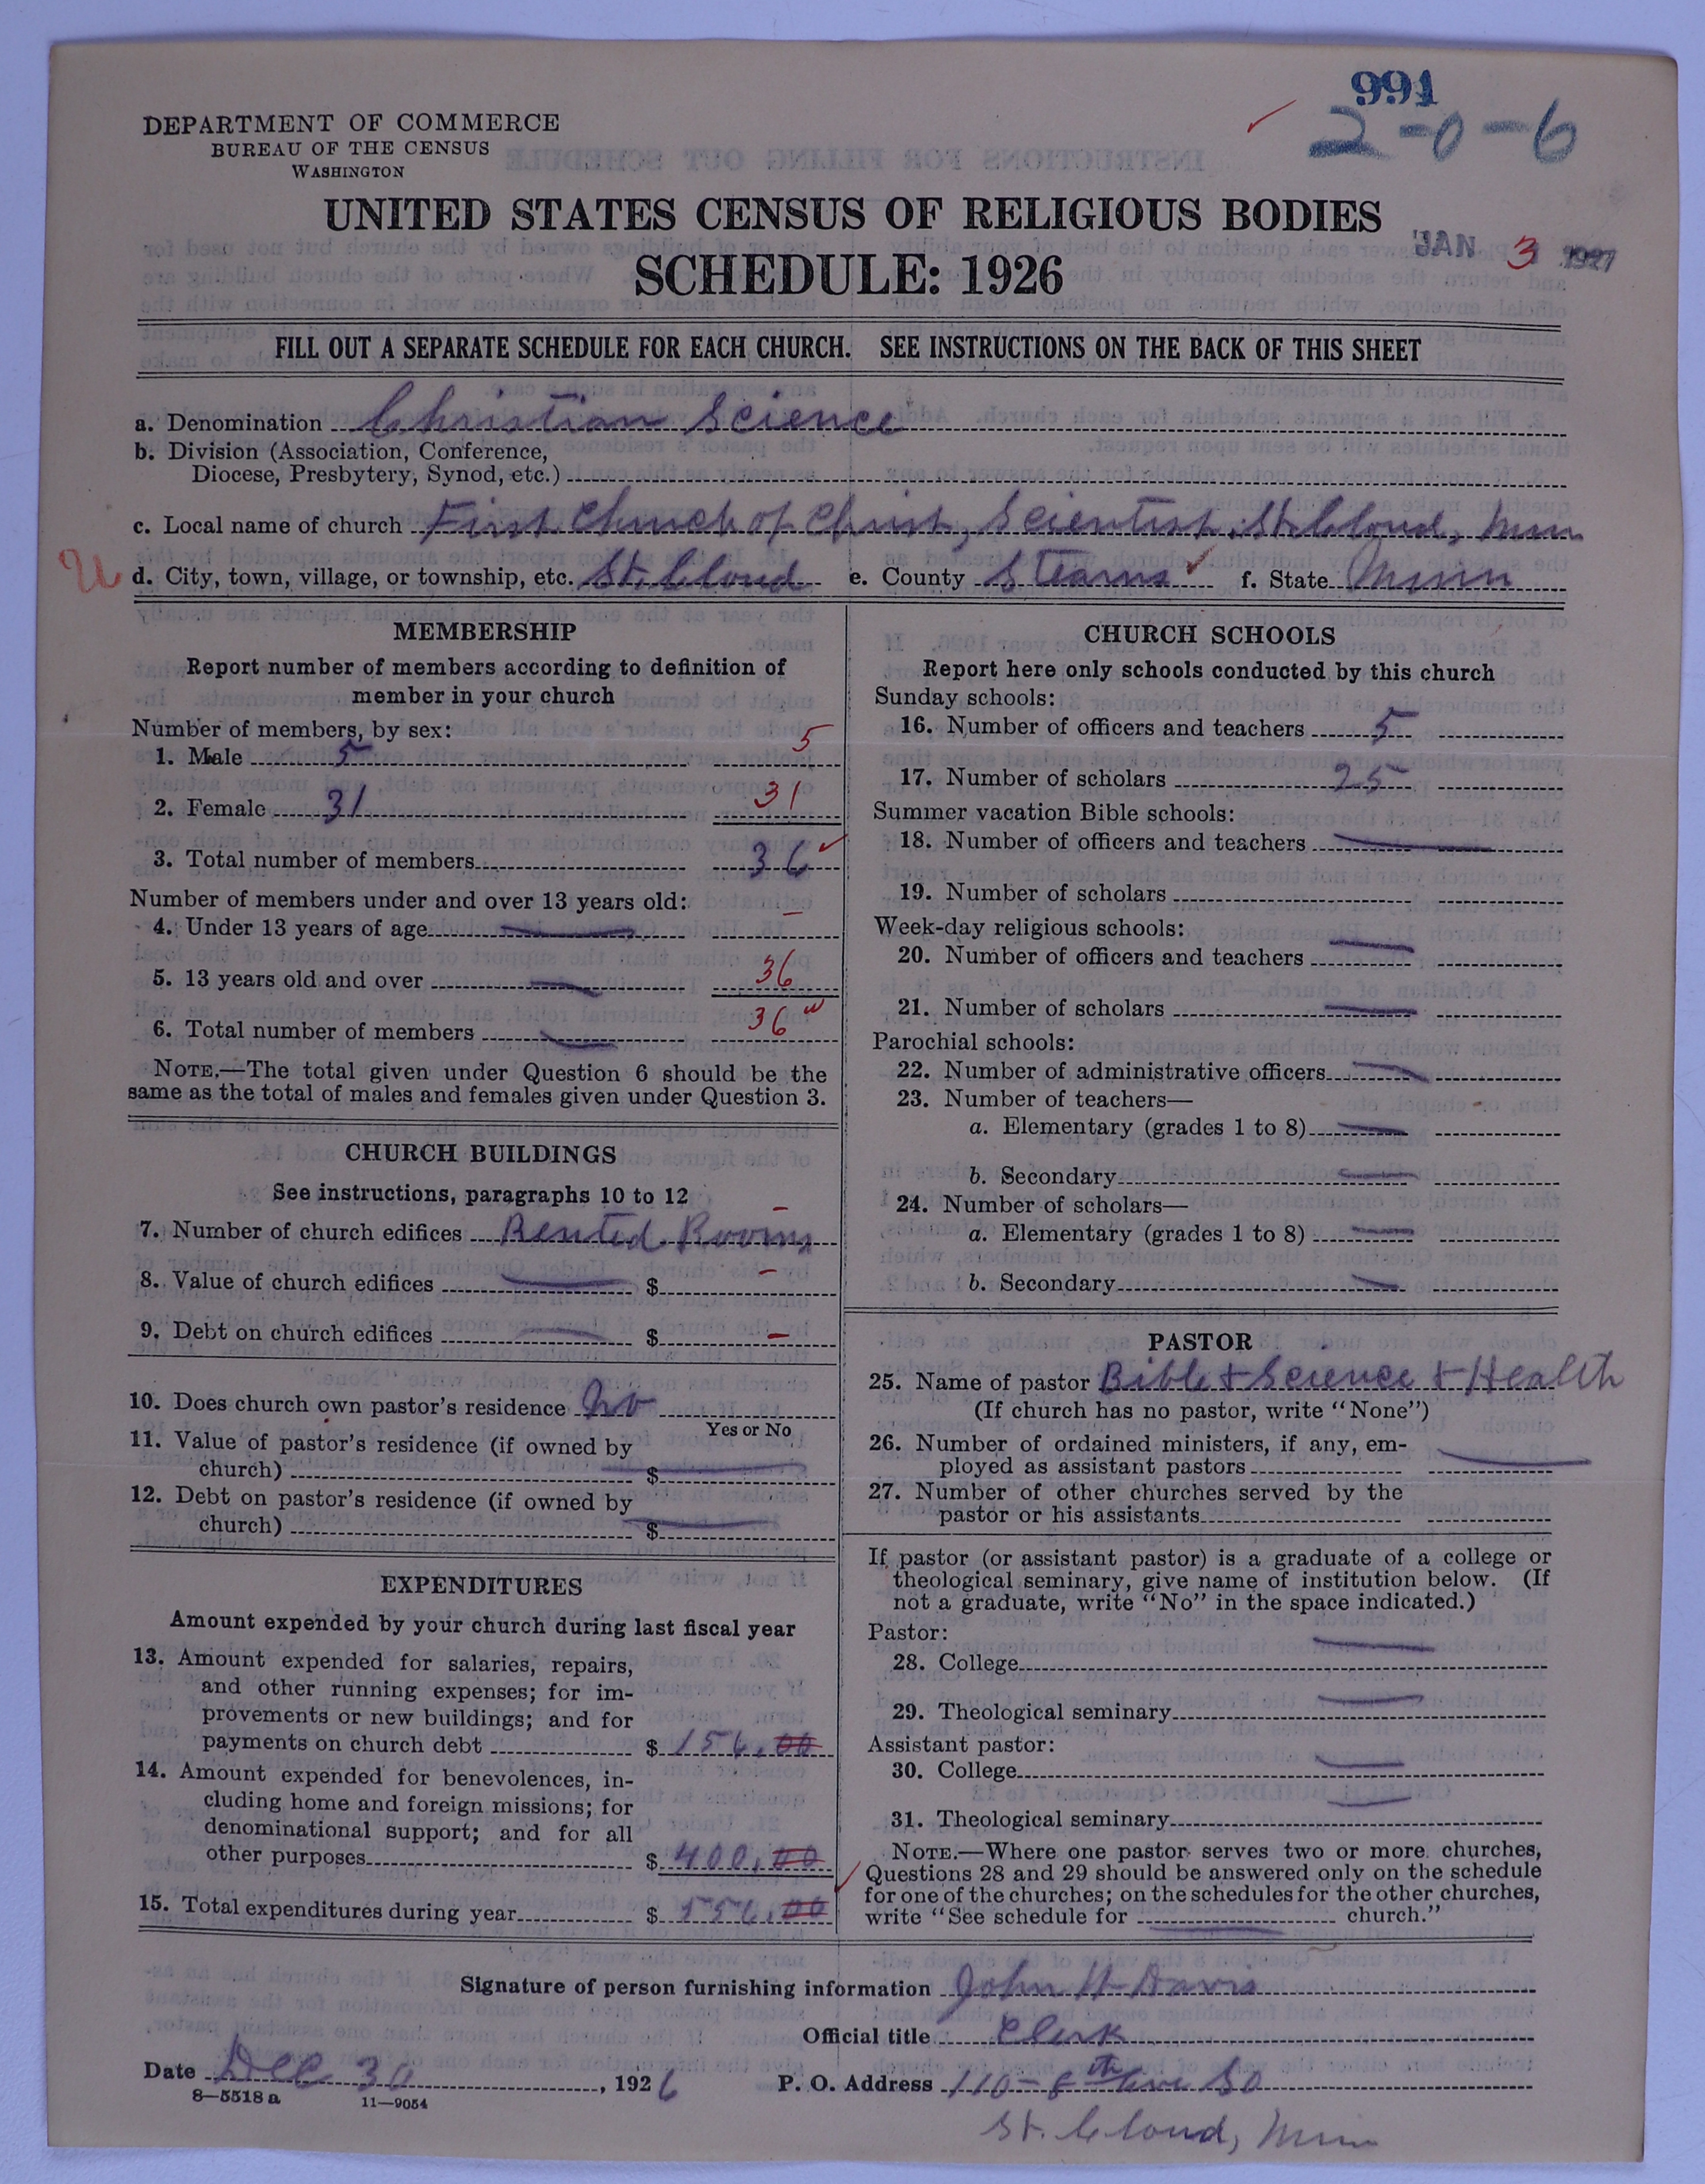 991
2-0-6
DEPARTMENT OF COMMERCE
BUREAU OF THE CENSUS
WASHINGTON
UNITED STATES CENSUS OF RELIGIOUS BODIES
SCHEDULE: 1926
JAN 3 1927
FILL OUT A SEPARATE SCHEDULE FOR EACH CHURCH. SEE INSTRUCTIONS ON THE BACK OF THIS SHEET
a. Denomination Christian Science
b. Division (Association, Conference,
Diocese, Presbytery, Synod, etc.)
c. Local name of church First Church of Christ, Scientist, St. Cloud, Minn
d. City, town, village, or township, etc. St. Cloud e. County Stearns f. State Minn
MEMBERSHIP
Report number of members according to definition of
member in your church
Number of members, by sex:
1. Male 5 5
2. Female 31 31
3. Total number of members 36
Number of members under and over 13 years old:
4. Under 13 years of age
5. 13 years old and over 36
6. Total number of members 36
NOTE.—The total given under Question 6 should be the
same as the total of males and females given under Question 3.
CHURCH BUILDINGS
See instructions, paragraphs 10 to 12
7. Number of church edifices Rented Rooms
8. Value of church edifices $
9. Debt on church edifices $
10. Does church own pastor's residence No
Yes or No
11. Value of pastor's residence (if owned by
church) $
12. Debt on pastor's residence (if owned by
church) $
EXPENDITURES
Amount expended by your church during last fiscal year
13. Amount expended for salaries, repairs,
and other running expenses; for im-
provements or new buildings; and for
payments on church debt $ 156.00
14. Amount expended for benevolences, in-
cluding home and foreign missions; for
denominational support; and for all
other purposes $ 400.00
15. Total expenditures during year $ 556.00
CHURCH SCHOOLS
Report here only schools conducted by this church
Sunday schools:
16. Number of officers and teachers 5
17. Number of scholars 25
Summer vacation Bible schools:
18. Number of officers and teachers
19. Number of scholars
Week-day religious schools:
20. Number of officers and teachers
21. Number of scholars
Parochial schools:
22. Number of administrative officers
23. Number of teachers—
a. Elementary (grades 1 to 8)
b. Secondary
24. Number of scholars—
a. Elementary (grades 1 to 8)
b. Secondary
PASTOR
25. Name of pastor Bible & Science & Health
(If church has no pastor, write "None")
26. Number of ordained ministers, if any, em-
ployed as assistant pastors
27. Number of other churches served by the
pastor or his assistants
If pastor (or assistant pastor) is a graduate of a college or
theological seminary, give name of institution below. (If
not a graduate, write "No" in the space indicated.)
Pastor:
28. College
29. Theological seminary
Assistant pastor:
30. College
31. Theological seminary
NOTE.—Where one pastor serves two or more churches,
Questions 28 and 29 should be answered only on the schedule
for one of the churches; on the schedules for the other churches,
write "See schedule for church."
Signature of person furnishing information John H Davis
Official title Clerk
Date Dec 30, 1926 P. O. Address 110-8th Ave So
8—5518 a 11—9054
St. Cloud, Minn